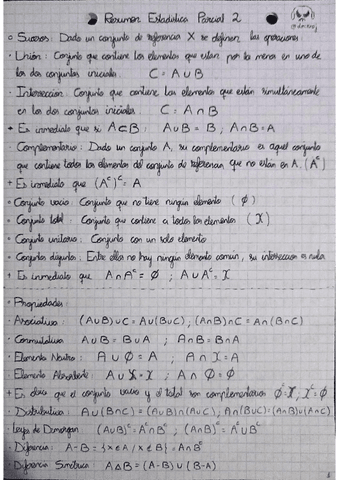 Resumen Estadística Parcial 2
○ Sucesos: Dado un conjunto de referencia X se definen las operaciones:
· Unión: Conjunto que contiene los elementos que están por lo menos en uno de
los dos conjuntos iniciales. C = A ∪ B
· Intersección: Conjunto que contiene los elementos que están simultáneamente
en los dos conjuntos iniciales. C = A ∩ B
+ Es inmediato que si A⊂B: A∪B = B, A∩B = A
· Complementario: Dado un conjunto A, su complementario es aquel conjunto
que contiene todos los elementos del conjunto de referencia que no están en A. (Aᶜ)
+ Es inmediato que (Aᶜ)ᶜ = A
○ Conjunto vacío: Conjunto que no tiene ningún elemento (∅)
○ Conjunto total: Conjunto que contiene a todos los elementos (X)
○ Conjunto unitario: Conjunto con un solo elemento
○ Conjuntos disjuntos: Entre ellos no hay ningún elemento común, su intersección es nula.
+ Es inmediato que A∩Aᶜ = ∅ ; A∪Aᶜ = X
○ Propiedades:
· Asociativa: (A∪B)∪C = A∪(B∪C); (A∩B)∩C = A∩(B∩C)
· Conmutativa: A∪B = B∪A ; A∩B = B∩A
· Elemento Neutro: A ∪ ∅ = A ; A ∩ X = A
· Elemento Absorbente: A∪X = X ; A ∩ ∅ = ∅
+ Es claro que el conjunto vacío y el total son complementarios ∅ᶜ = X ; Xᶜ = ∅
· Distributiva: A∪(B∩C) = (A∪B)∩(A∪C); A∩(B∪C) = (A∩B)∪(A∩C)
· Leyes de Demorgan: (A∪B)ᶜ = Aᶜ∩Bᶜ ; (A∩B)ᶜ = Aᶜ∪Bᶜ
· Diferencia: A-B = {x∈A / x∉B} = A∩Bᶜ
· Diferencia Simétrica: A△B = (A-B) ∪ (B-A)